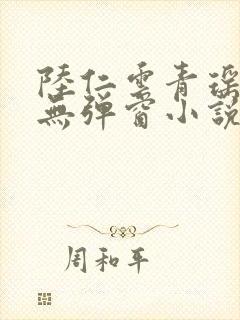 陸仁雲青瑶
無彈窗小說
周和平